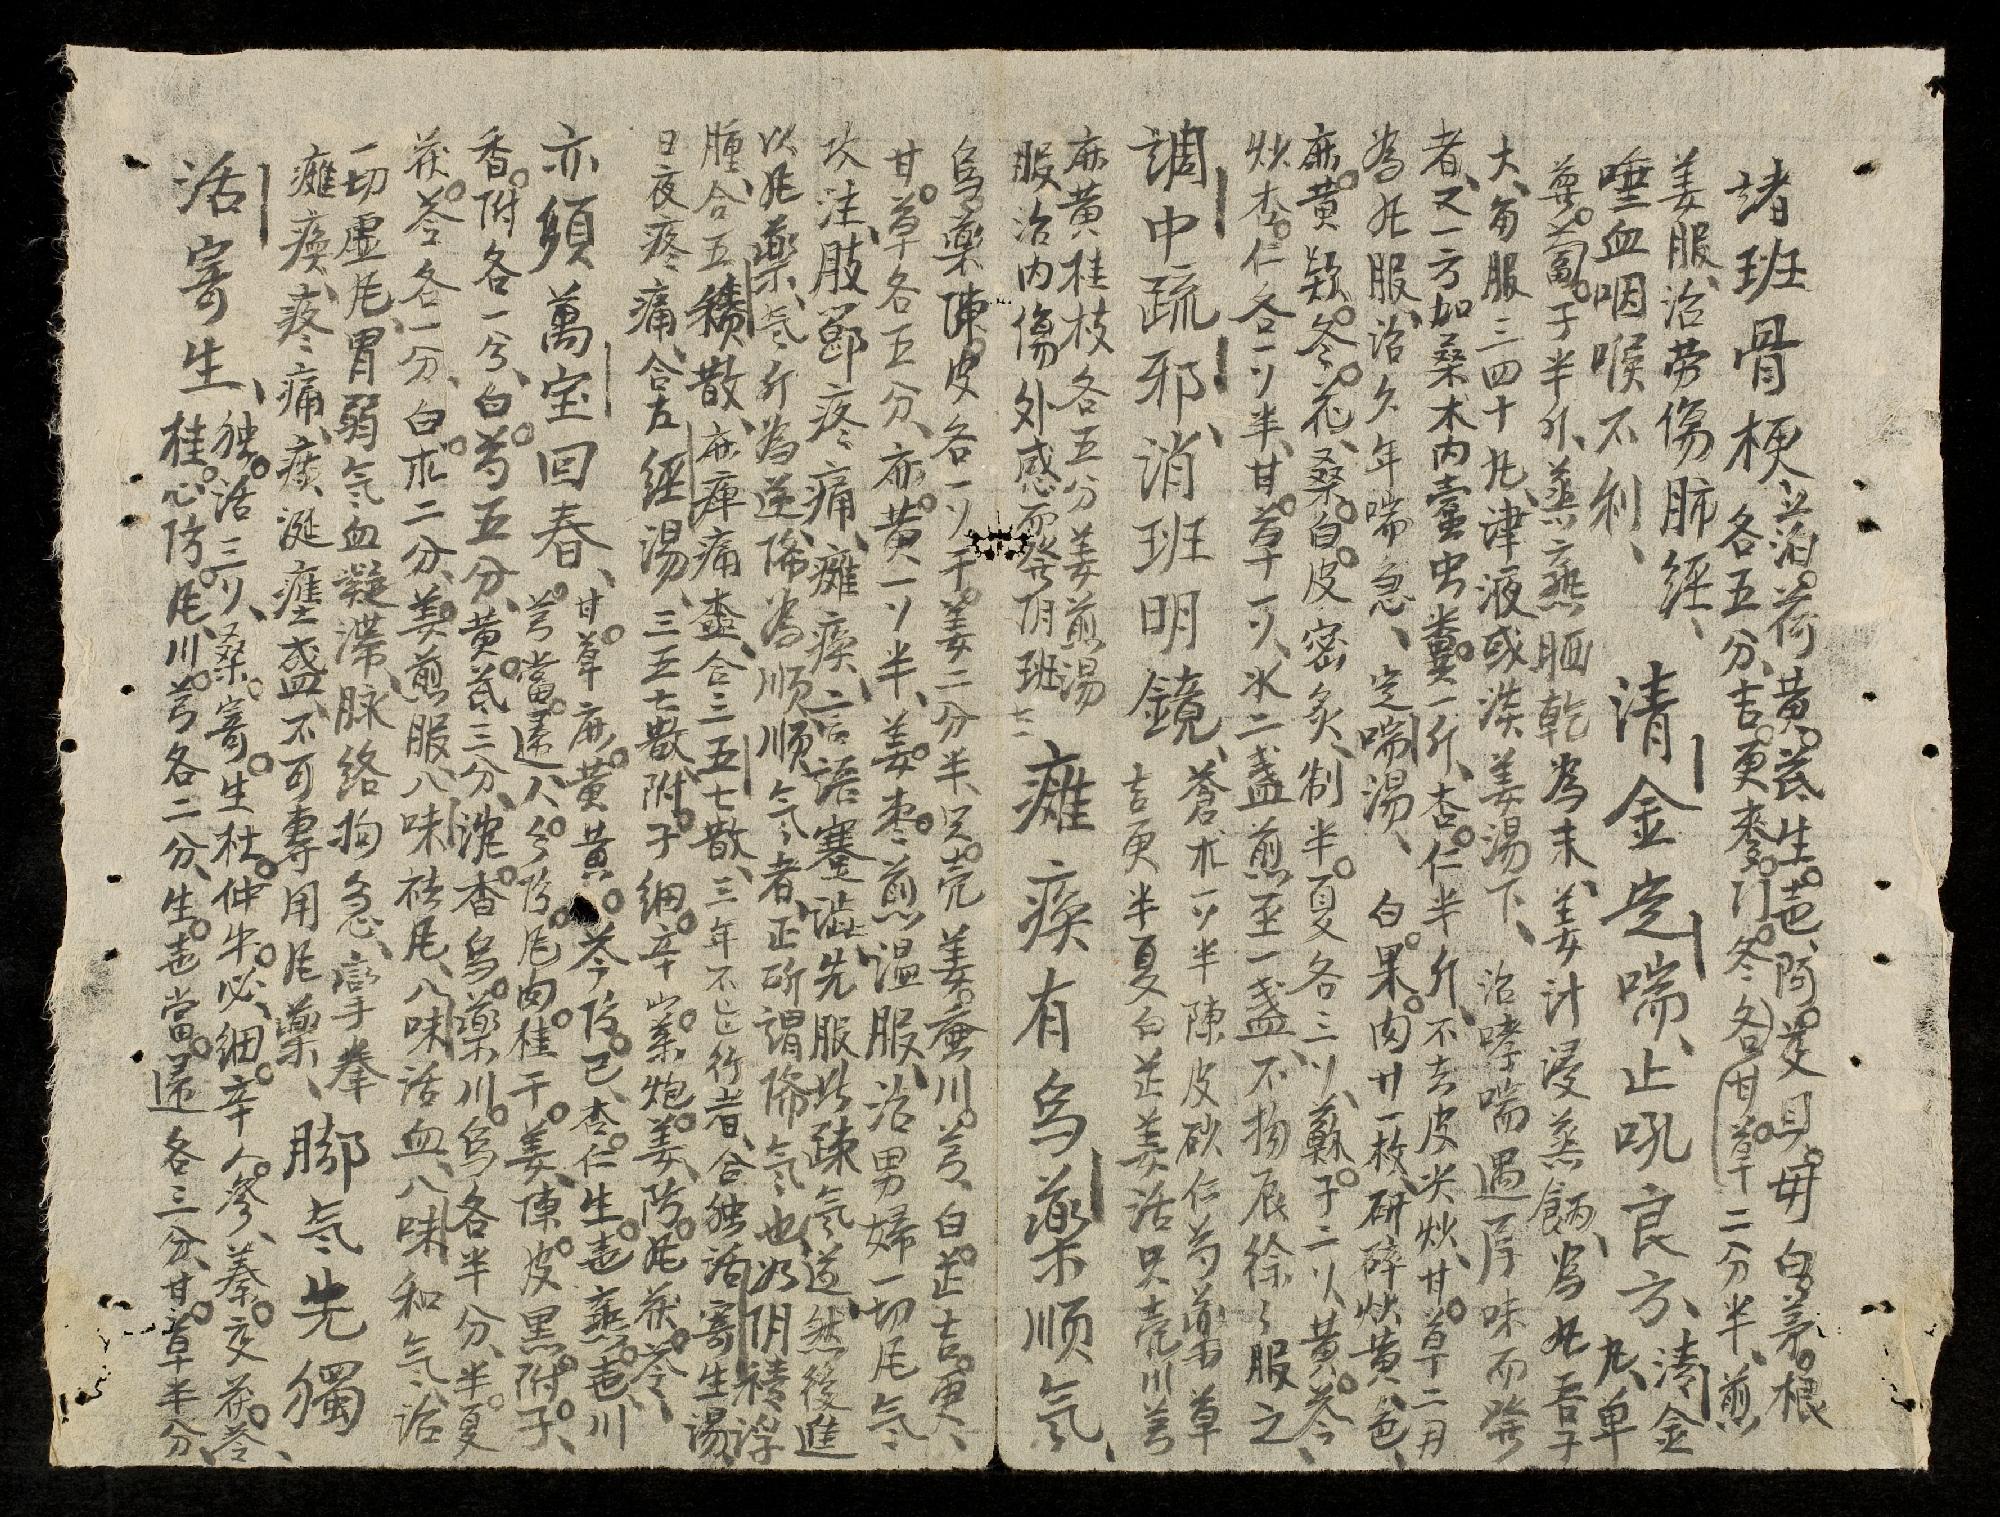 諸班骨梗、泊荷黄芪生芐、阿胶貝毋白茅根
各五分、吉更麥门冬各(甘草)二分半、煎
姜服、治劳傷肺經、
唾血咽喉不利、
清金定喘、止吼良方、清金
丸、单
葶藶子半斤、蒸熟晒乾為末、姜汁浸蒸餅為丸吾子
大、每服三四十丸、津液或淡姜湯下、治哮喘遇厚味而發
者、又一方加桑木内蠹虫糞一斤、杏仁半斤、不去皮尖炒、甘草二月
為丸服、治久年喘急、定喘湯、白果肉廿一枚、研碎炒黄色、
麻黄、款冬花、桑白皮密炙、制半夏各三丷、蘇子二丷黄芩、
炒杏仁各一丷半、甘草一丷、水二盞煎至一盞、不拘辰徐々服之
調中疏邪、消班明鏡、
蒼朮一丷半陳皮砂仁芍藥甘草
吉更半夏白芷姜活只壳川芎
麻黄桂枝各五分姜煎湯
服治内傷外感而發阴班
癱瘓有烏藥順气、
烏藥陳皮各一丷干姜二分半只壳姜蚕川芎、白芷吉更、
甘草各五分、麻黄一丷半、姜枣煎温服、治男婦一切風气
攻注肢節疼痛、癱瘓言語蹇澁、先服此疎气道、然後進
以風藥、气斤為逆、降為順、順气者、正所謂降气也、如阴積浮
腫、合五積散、麻痺痛盛、合三五七散、三年不能行者、合独活寄生湯、
日夜疼痛、合左經湯、三五七散、附子細辛山茱炮姜防風茯苓
亦須萬宝回春、
甘草麻黄黄芩防己、杏仁生芐熟芐川
芎當歸人参防風肉桂干姜陳皮黑附子、
香附各一兮、白芍五分、黄芪三分、沈香烏藥川烏各半分、半夏
茯苓各一分、白朮二分、姜煎服八味祛風、八味活血、八味和气、治
一切虛風胃弱气血凝滯、脉絡拘急、孿拳
癱瘓、疼痛、痰涎壅盛、不可專用風藥、
脚气先獨
活寄生、
独活三丷、桑寄生杜仲牛必、細辛人參、秦交茯苓、
桂心防風川芎各二分、生芐當歸各三分、甘草半分